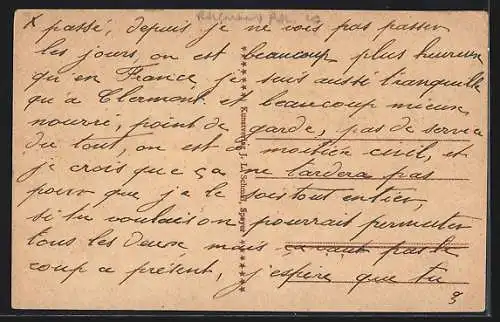 x passé, depuis, je ne vois pas passer
les jours, on est beaucoup plus heureux
qu'en France, je suis aussi tranquille
qu'à Clermont, et beaucoup mieux
nourri, point de garde, pas de service
du tout, on est à moitié civil, et
je crois que ça ne tardera pas
pour que je le sois tout entier,
si tu voulais on pourrait permuter
tous les deux mais ça vaut pas le
coup a présent, j'espère que tu
Kunstverlag J. L. Schmidt, Speyer